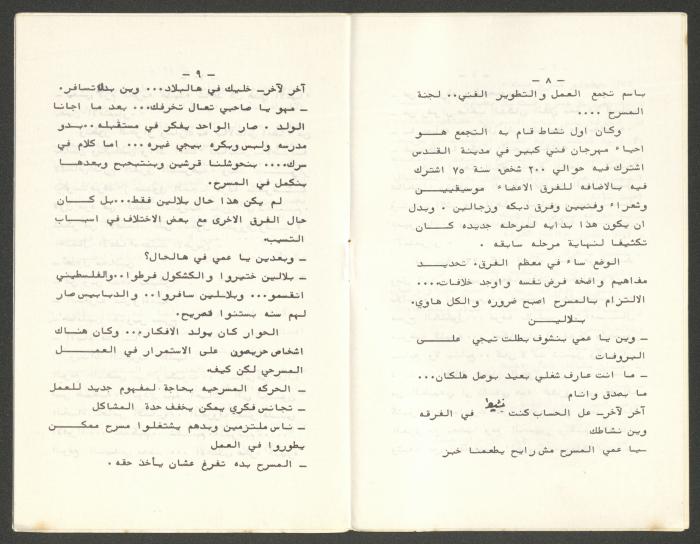 ـ ٨ ـ
باسم تجمع العمل والتطوير الفني.. لجنة
المسرح ....
وكان اول نشاط قام به التجمع هـــو
احياء مهرجان فني كبير في مدينة القدس
اشترك فيه حوالي ٢٠٠ شخص سنة ٧٥ اشترك
فيه بالاضافه للفرق الاعضاء موسيقييــن
وشعراء وفنيين وفرق دبكه وزجالين . وبدل
ان يكون هذا بدايه لمرحله جديده كــان
تكثيفا لنهاية مرحله سابقه .
الوضع ساء في معظم الفرق. تحديـــد
مفاهيم واضحه فرض نفسه واوجد خلافات....
الالتزام بالمسرح اصبح ضروره والكل هاوي.
بـلالـيـــن
ـ وين يا عمي بنشوف بطلت تيجي علـــى
البروفات
ـ ما انت عارف شغلي بعيد بوصل هلكان...
ما بصدق وانام
آخر لآخرـ عل الحساب كنت نشيط في الفرقه
وين نشاطك
ـيا عمي المسرح مش رايح يطعمنا خبز
ـ ٩ ـ
آخر لآخرـ خليك في هالبلاد... وين بدك تسافر.
ـ مهو يا صاحبي تعال تخرفك... بعد ما اجانا
الولد . صار الواحد يفكر في مستقبله..بـدو
مدرسه ولبس وبكره بيجي غيره... اما كلام في
سرك.... بنحوشلنا قرشين وبنتبحبح وبعدهـــا
بنكمل في المسرح.
لم يكن هذا حال بلالين فقط...بل كــان
حال الفرق الاخرى مع بعض الاختلاف في اسبــاب
التسيب.
ـ وبعدين يا عمي في هالحال؟
ـ بلالين ختيروا والكشكول فرطوا..والفلسطيني
انقسمو... وبلالين سافروا.. والدبابيس صار
لهم سنه بستنوا تصريح.
الحوار كان يولد الافكار... وكان هنـاك
اشخاص حريصون على الاستمرار في العمـــل
المسرحي لكن كيف.
ـ الحركه المسرحيه بحاجة لمفهوم جديد للعمل
ـ تجانس فكري يمكن يخفف حدة المشاكل
ـ ناس ملتزمين وبدهم يشتغلوا مسرح ممكــن
يطوروا في العمل
ـ المسرح بده تفرغ عشان يأخذ حقه .